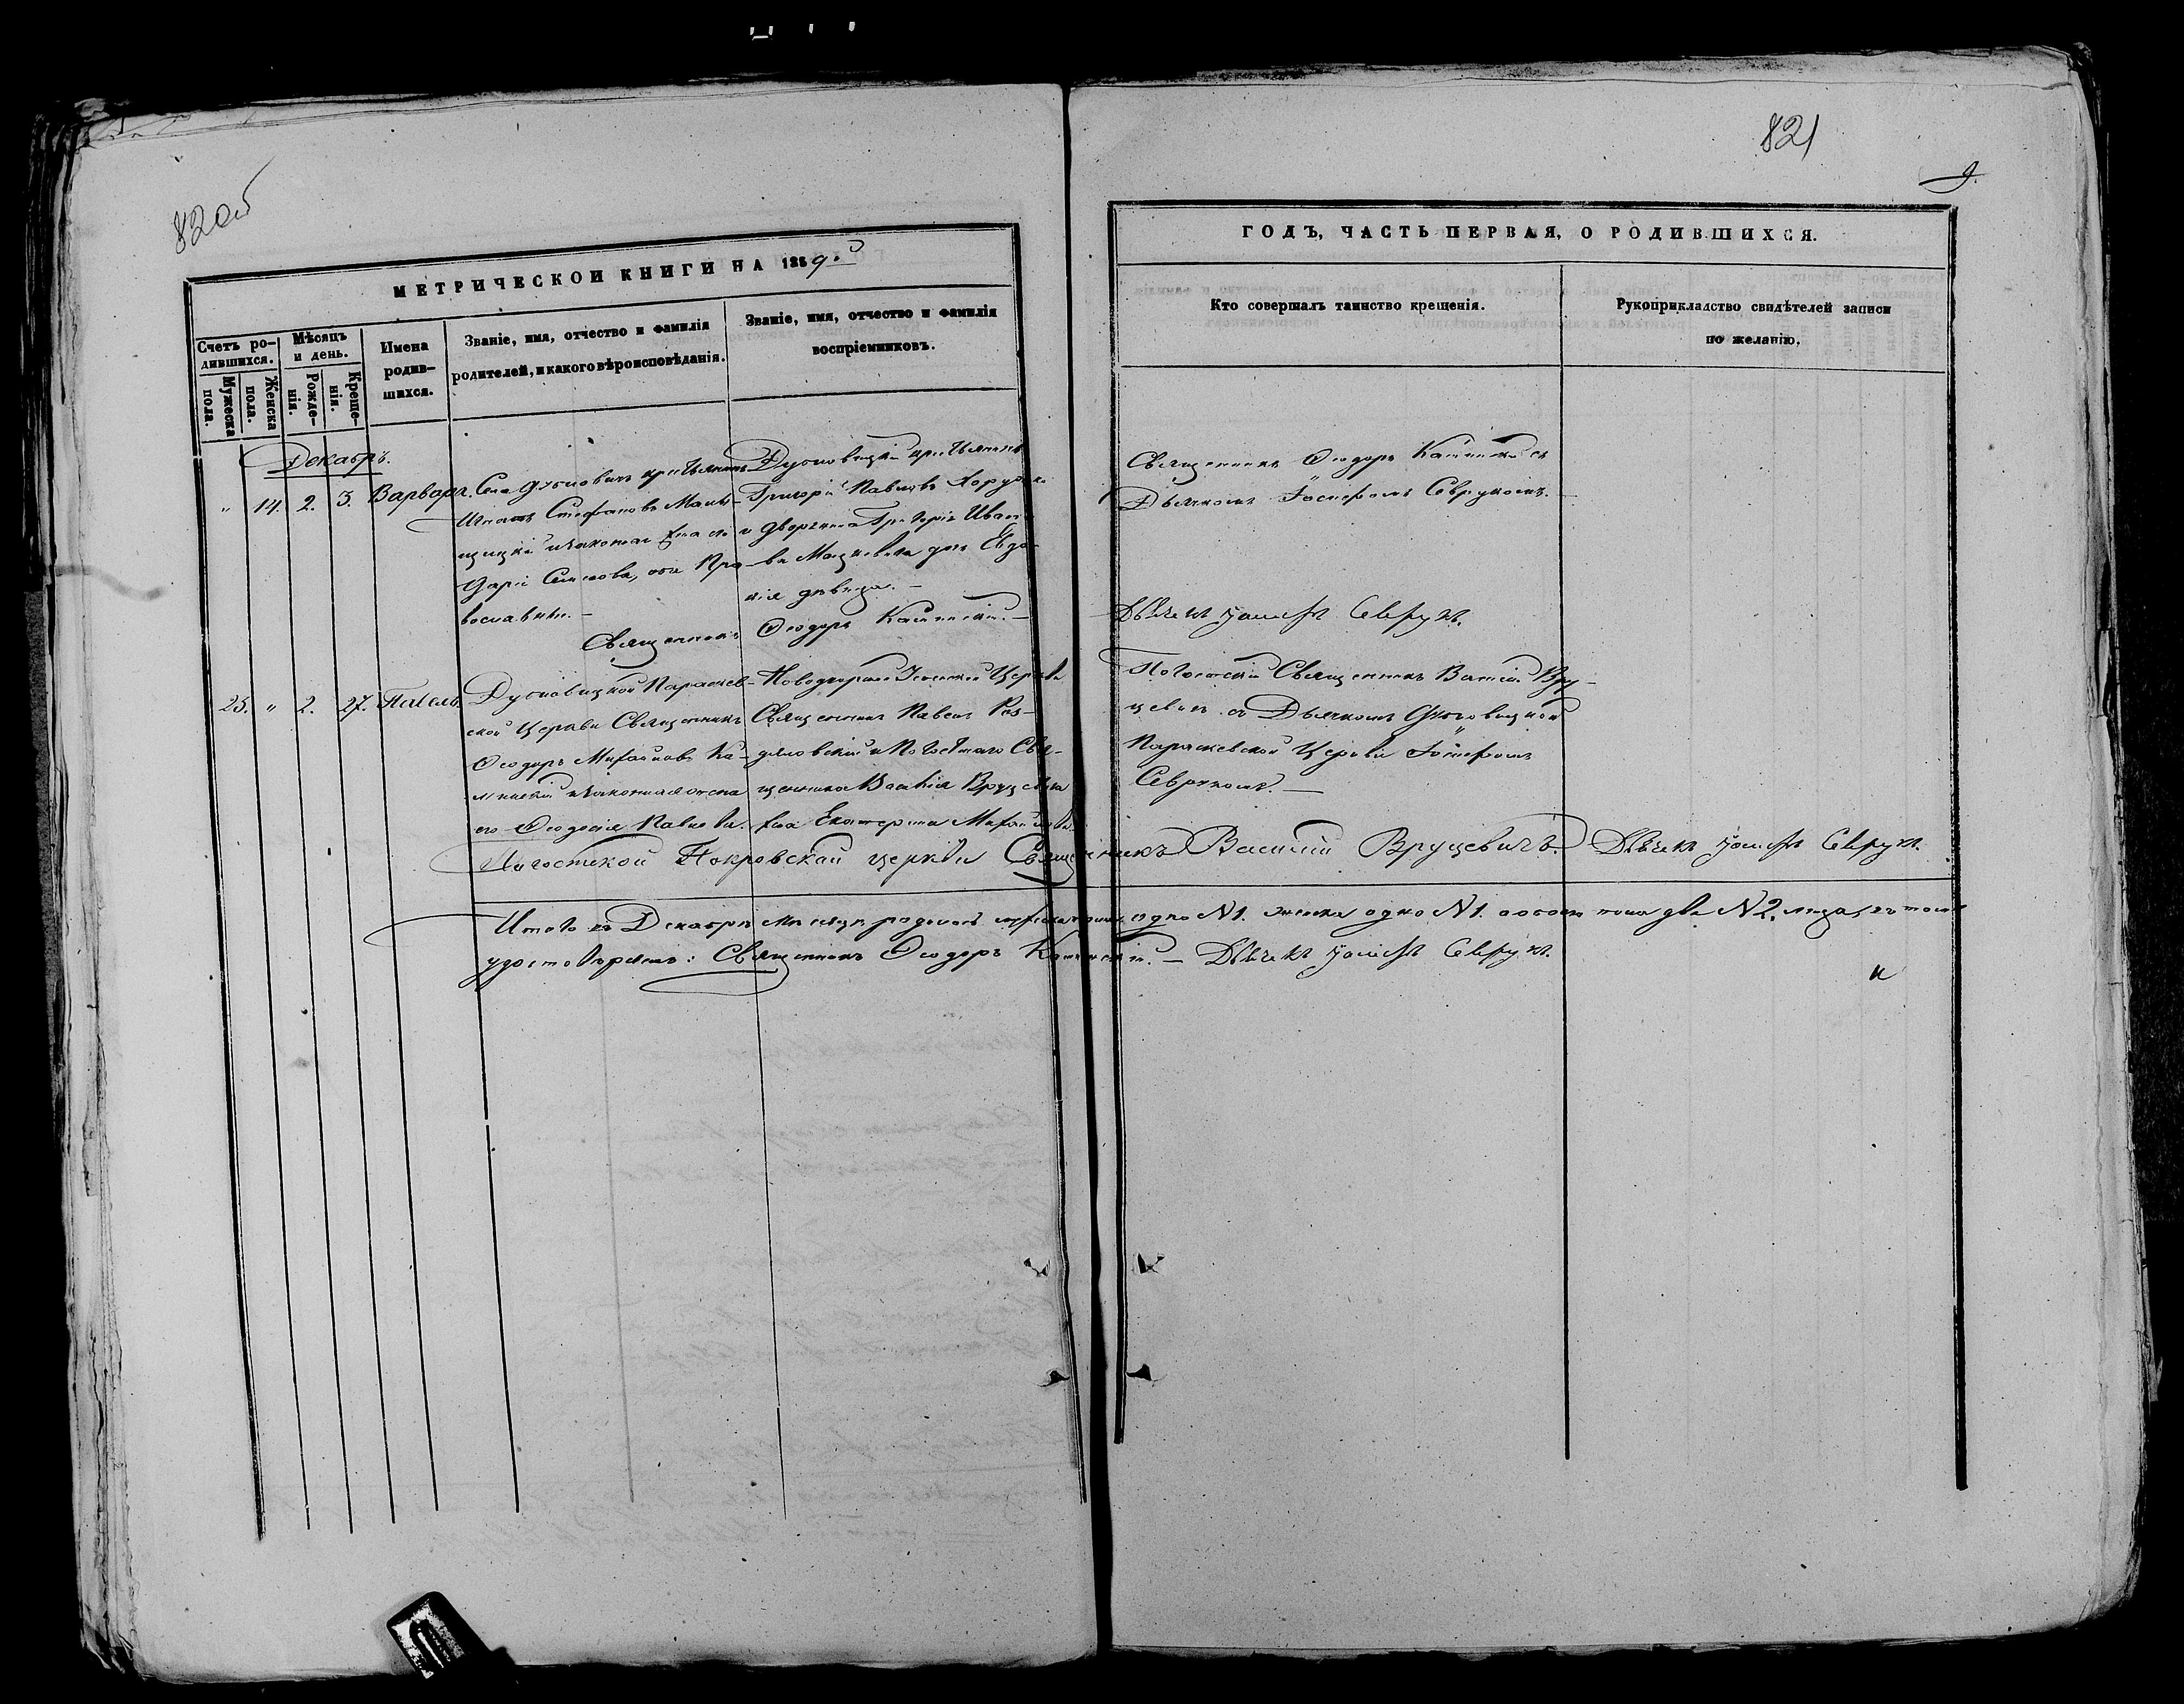 820об
821
9.
МЕТРИЧЕСКОЙ КНИГИ НА 1859.й
ГОДЪ, ЧАСТЬ ПЕРВАЯ, О РОДИВШИХСЯ.
Счетъ ро-
дившихся.
Мужеска
пола.
Женска
пола.
Мѣсяцъ
и день.
Рожде-
нія.
Креще-
нія.
Имена
родив-
шихся.
Званіе, имя, отчество и фамилія
родителей, и какого вѣроисповѣданія.
Званіе, имя, отчество и фамилія
воспріемниковъ.
Кто совершалъ таинство крещенія.
Рукоприкладство свидѣтелей записи
по желанію.
Декабрь.
" 14. 2. 3. Варвара.
Села крестьянинъ
Игнатъ Стефановъ
законная жена его
Дарія Семенова, оба Пра-
вославные.—
крестьянинъ
Григорій Павловъ
и дворянина Григорія Ивано-
ва дочь Евдо-
кія дѣвица.—
Священникъ Ѳеодоръ Каминскій.—
Священникъ Ѳеодоръ Каминскій съ
Дьячкомъ Іосифомъ Соврукомъ.—
Дьячекъ Іосифъ Соврукъ.
23. " 2. 27. Павелъ.
Параскев-
ской Церкви Священникъ
Ѳеодоръ Михайловъ Ка-
минскій и законная жена
его Ѳеодосія Павлова.
Новодворской Церкви
Священникъ Павелъ Раз-
дяловскій и Погостскаго Свя-
щенника Василія Вруцевича
жена Екатерина Михайлова.
Погостскій Священникъ Василій Вру-
цевичъ съ Дьячкомъ
Параскевской Церкви Іосифомъ
Соврукомъ.—
Погостской Покровской церкви Священникъ Василій Вруцевичъ. Дьячекъ Іосифъ Соврукъ.
Итого въ Декабрѣ мѣсяцѣ родилось мужеска пола одно N1. женска одно N1. обоего пола два N2. въ томъ
удостовѣряемъ: Священникъ Ѳеодоръ Каминскій.— Дьячекъ Іосифъ Соврукъ.